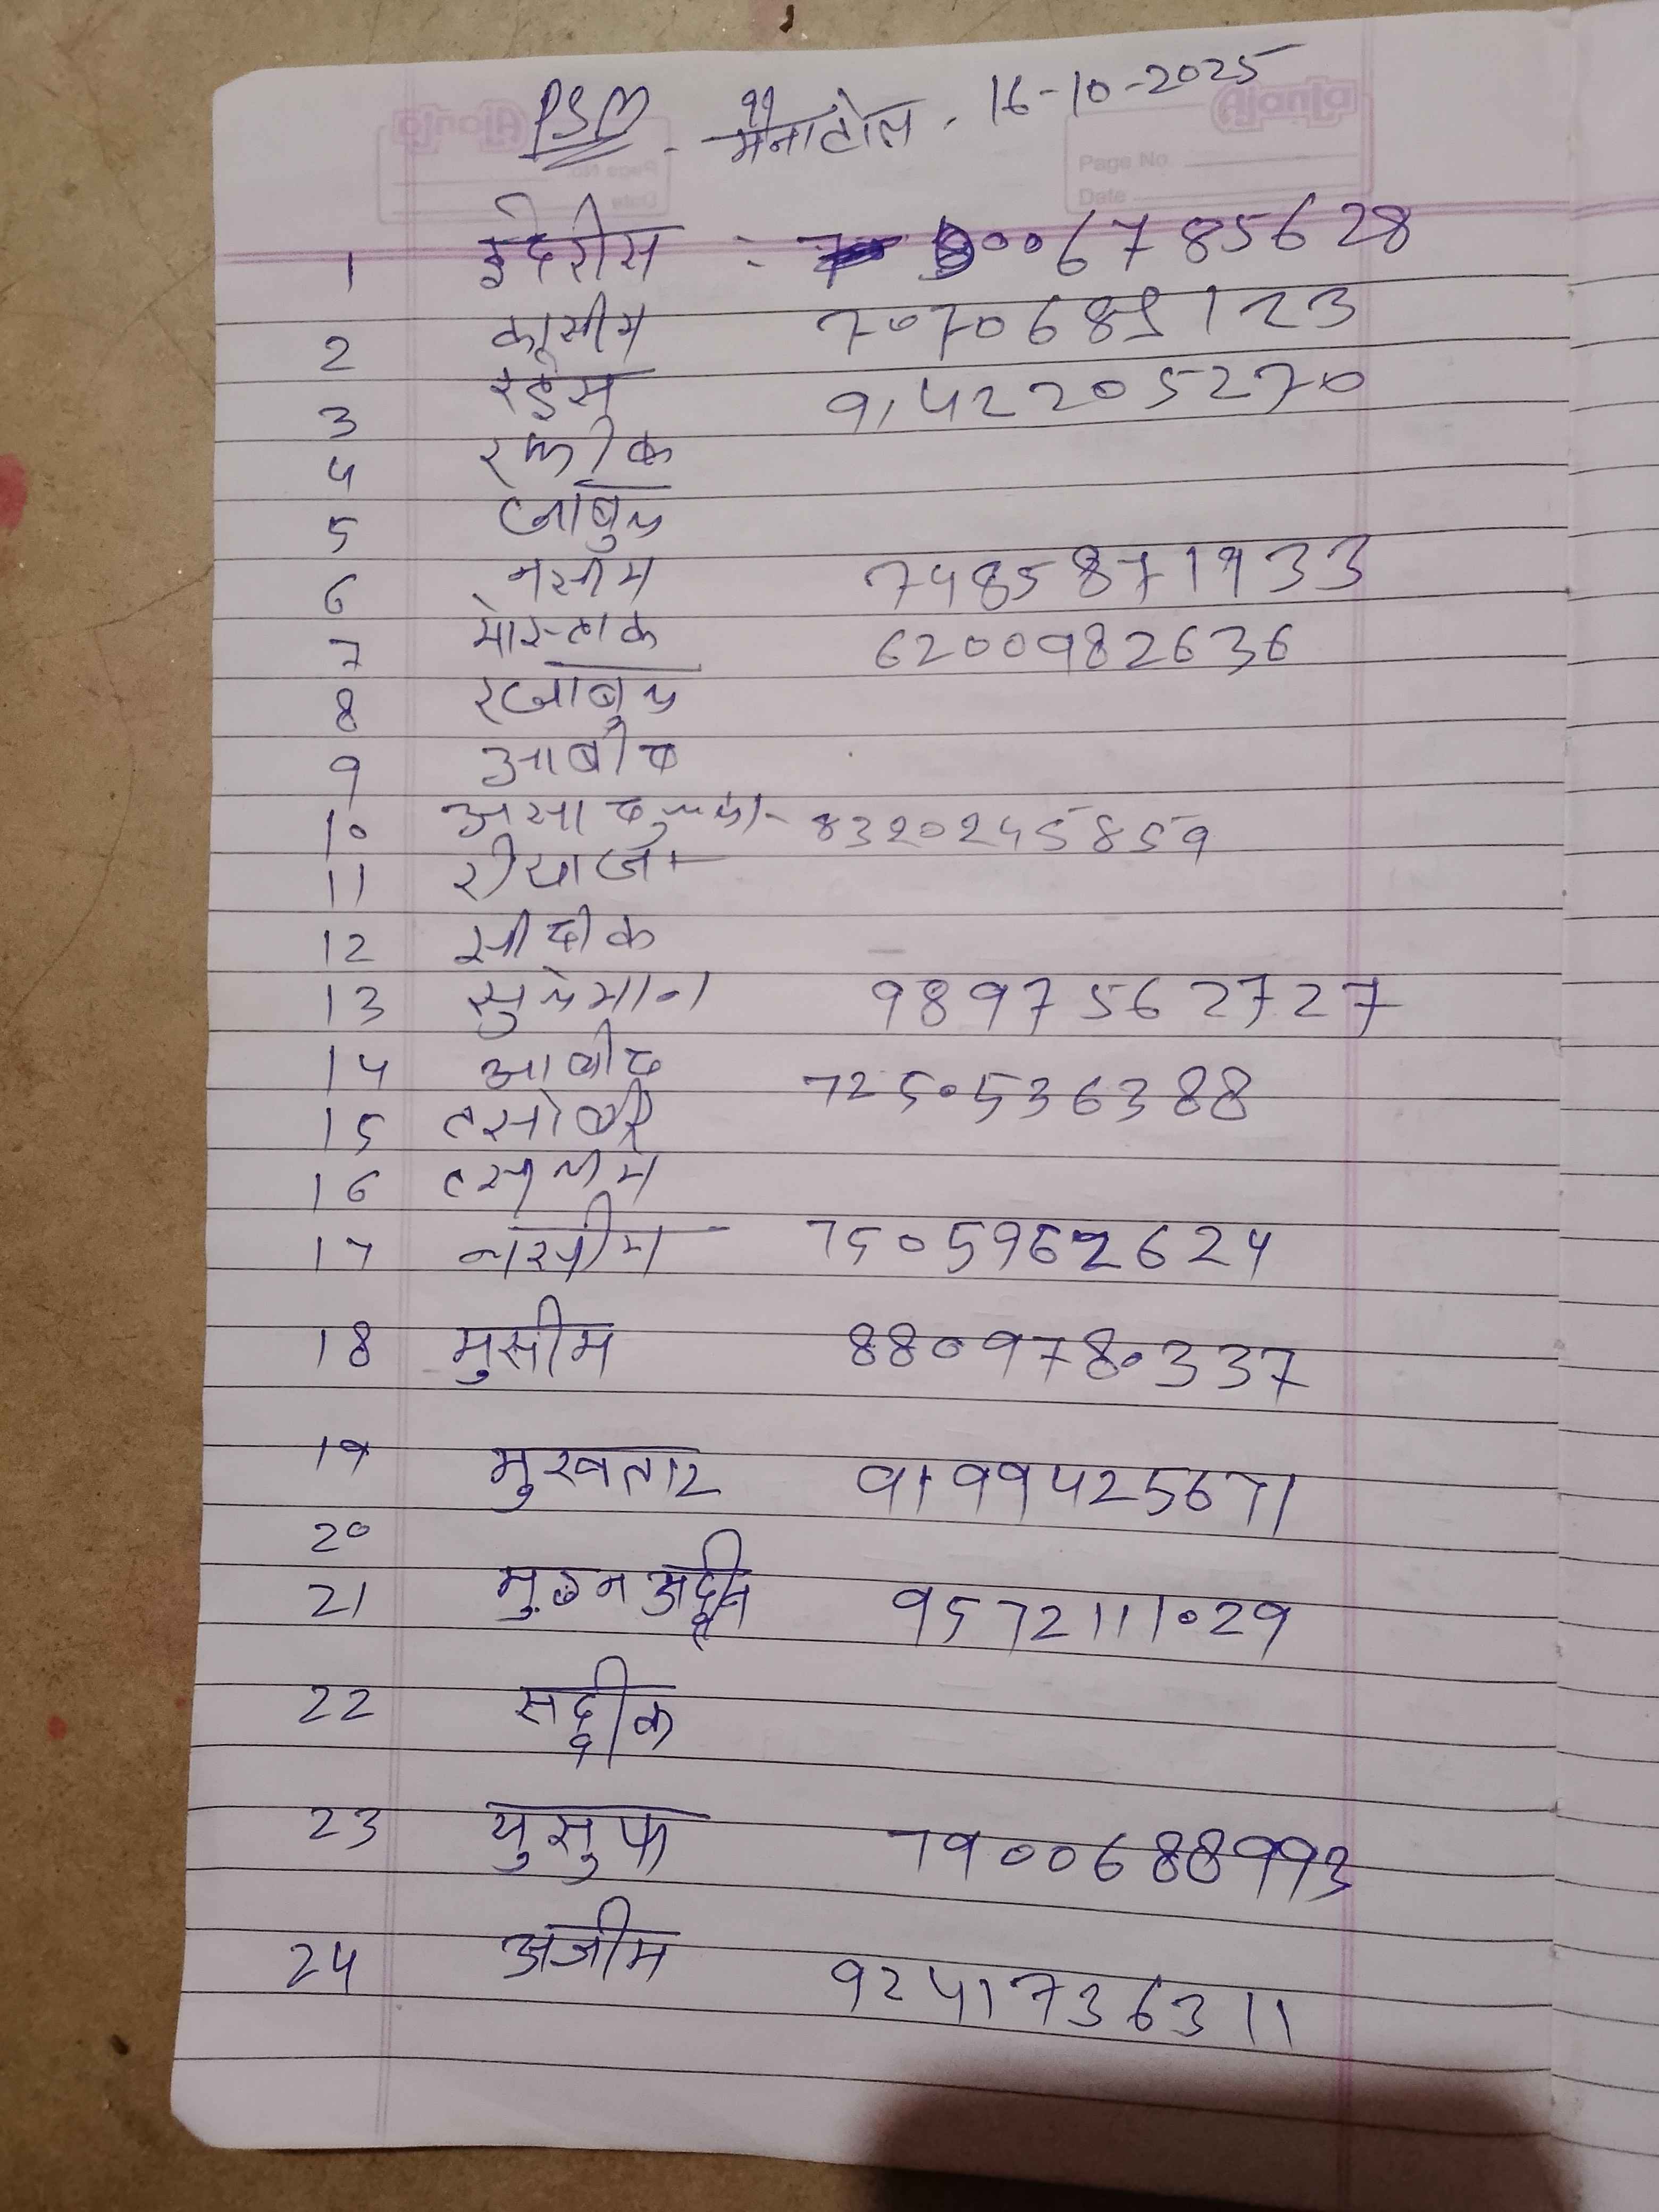 PSM - मैनाटोल - 16-10-2025
Ajanta
Page No.
Date
1 ईदरीस : 9006785628
2 कासीम 7070689123
3 रईस 9142205270
4 रफीक
5 जाबुल
6 नसीम 7485871933
7 मोस्ताक 6200982636
8 रजाबुल
9 आबीद
10 असादुल्लाह - 8320245859
11 रीयाज
12 सीदीक
13 सुलेमान 9897562727
14 आबीद 7250536388
15 तसोबर
16 तसलीम
17 नसीम - 7505962624
18 मुसीम 8809780337
19 मुखतार 9199425671
20
21 9572111029
22 सद्दीक
23 युसुफ 7900688993
24 अजीम 9241736311